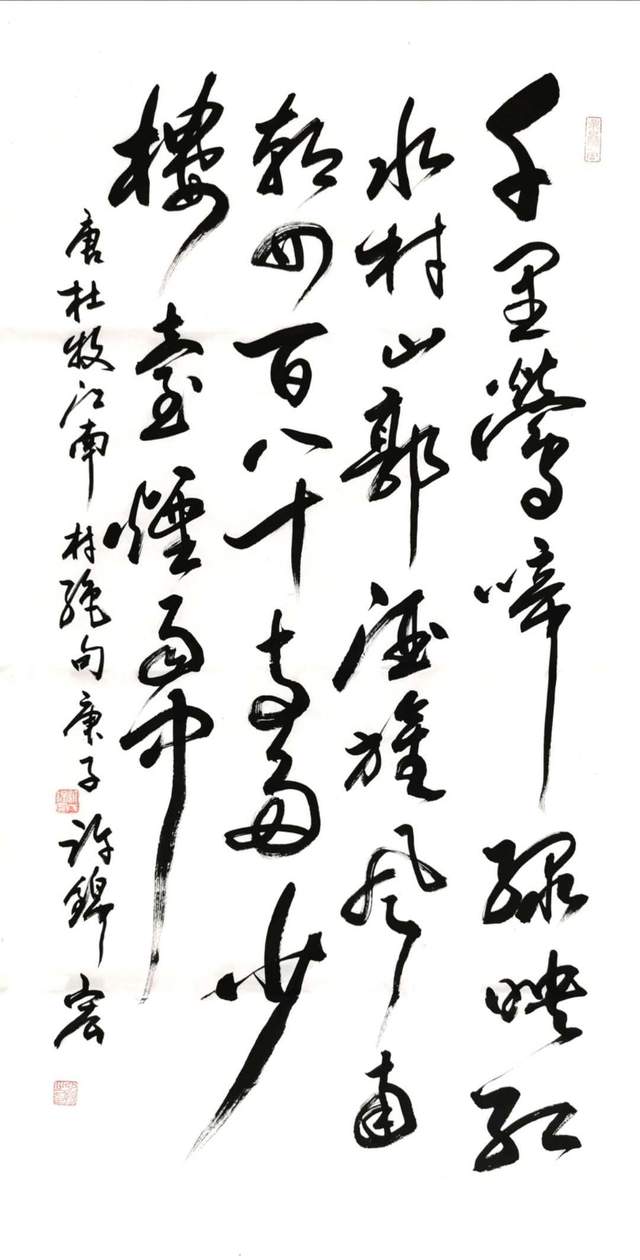 千里鶯啼綠映紅
水村山郭酒旗風南
朝四百八十寺多少
樓臺煙雨中
唐杜牧江南村絕句庚子許錦宏